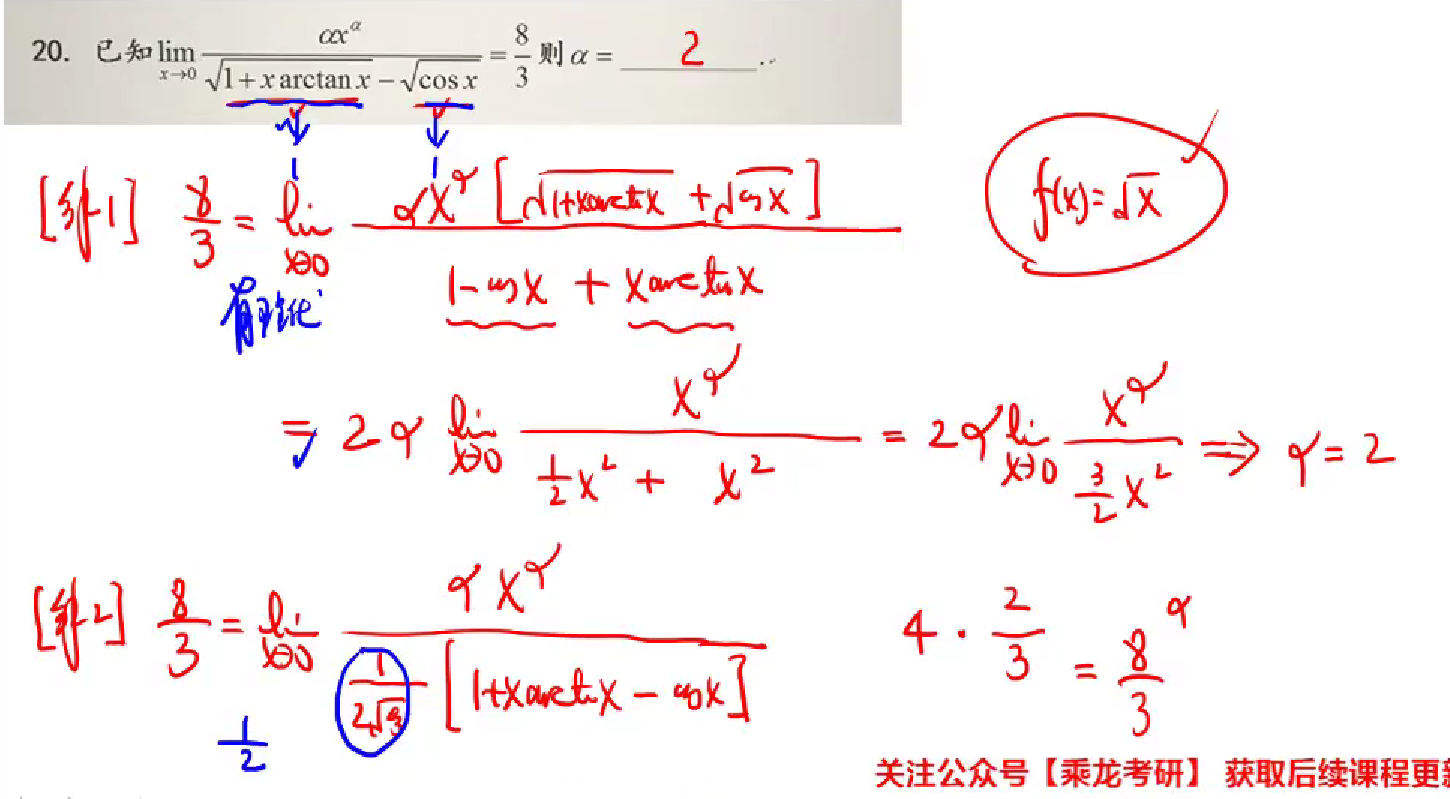 20. 已知 lim x→0 αx^α / (√(1+x arctan x) − √(cos x)) = 8/3 则 α = 2
f(x)=√x
[解1] 8/3 = lim x→0 αx^α [√(1+xarctx) + √(cosx)] / (1-cosx + xarctanx)
有理化
= 2α lim x→0 x^α / (1/2 x² + x²) = 2α lim x→0 x^α / (3/2 x²) ⇒ α = 2
[解2] 8/3 = lim x→0 αx^α / (1/(2√ξ) [1+xarctx − cosx])
1/2
4 · 2/3 = 8/3 α
关注公众号【乘龙考研】 获取后续课程更